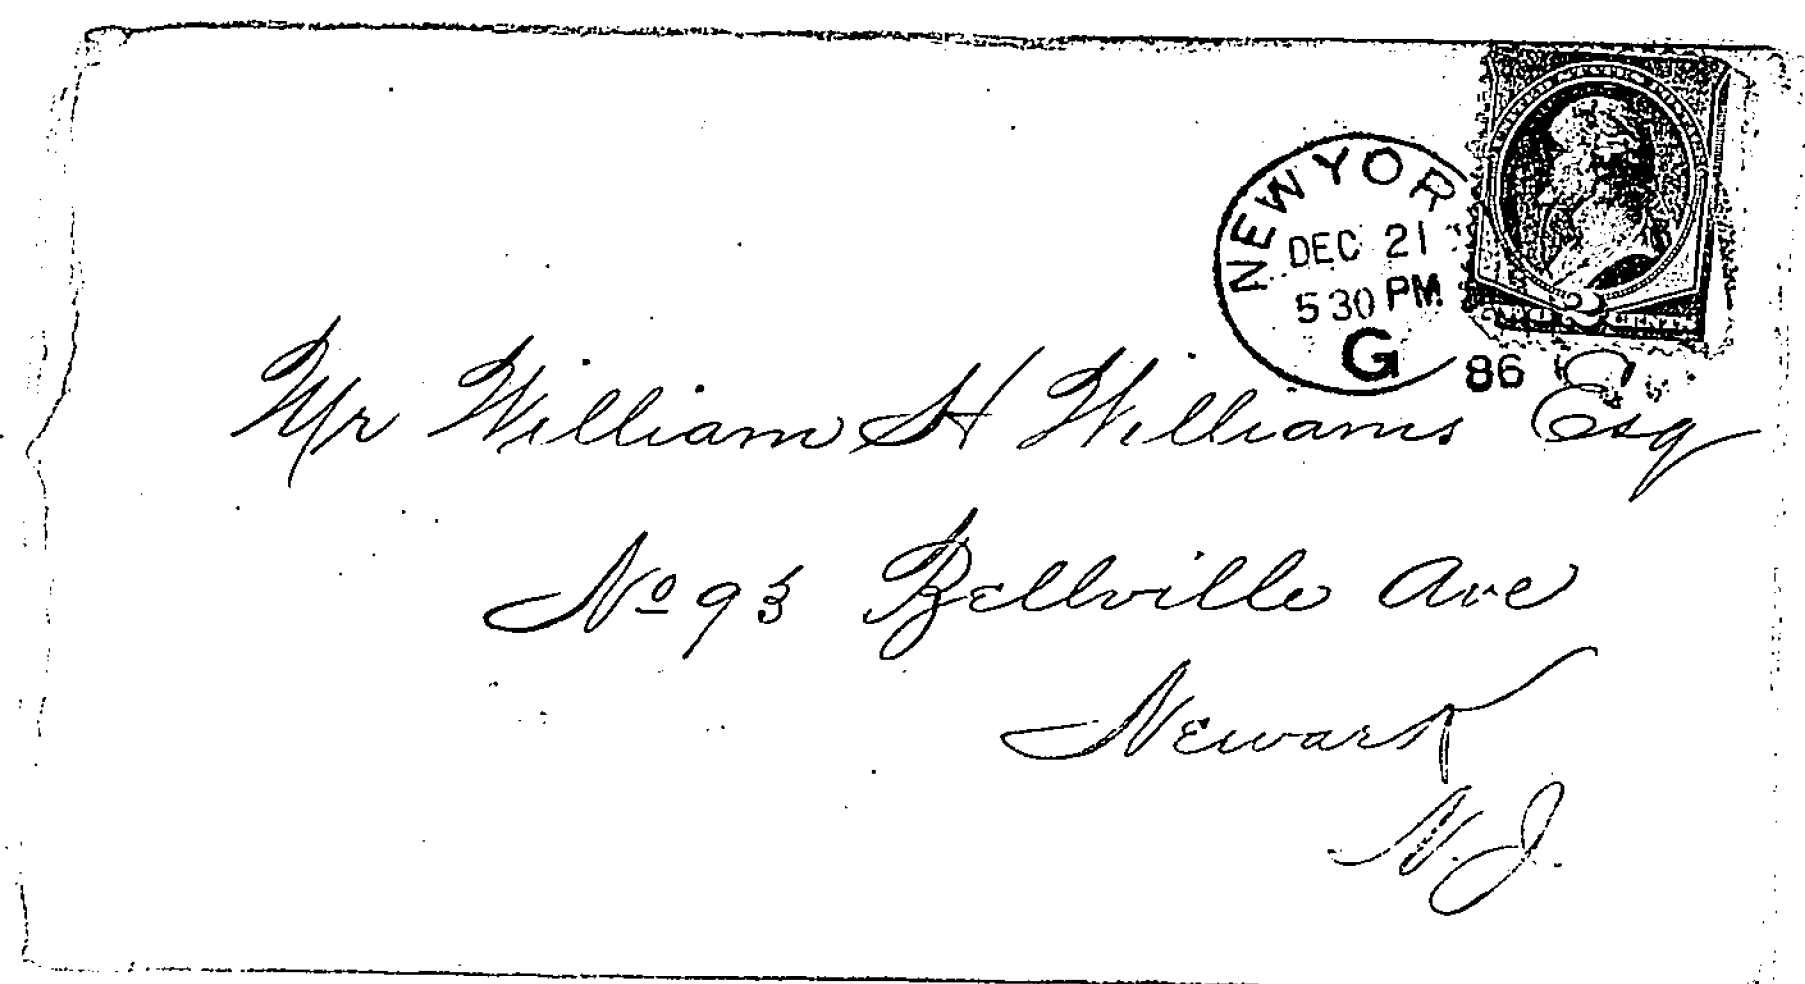 NEW YOR
DEC 21
5 30 PM
G
86
Mr William H Williams Esq
No 93 Bellville Ave
Newark
N.J.